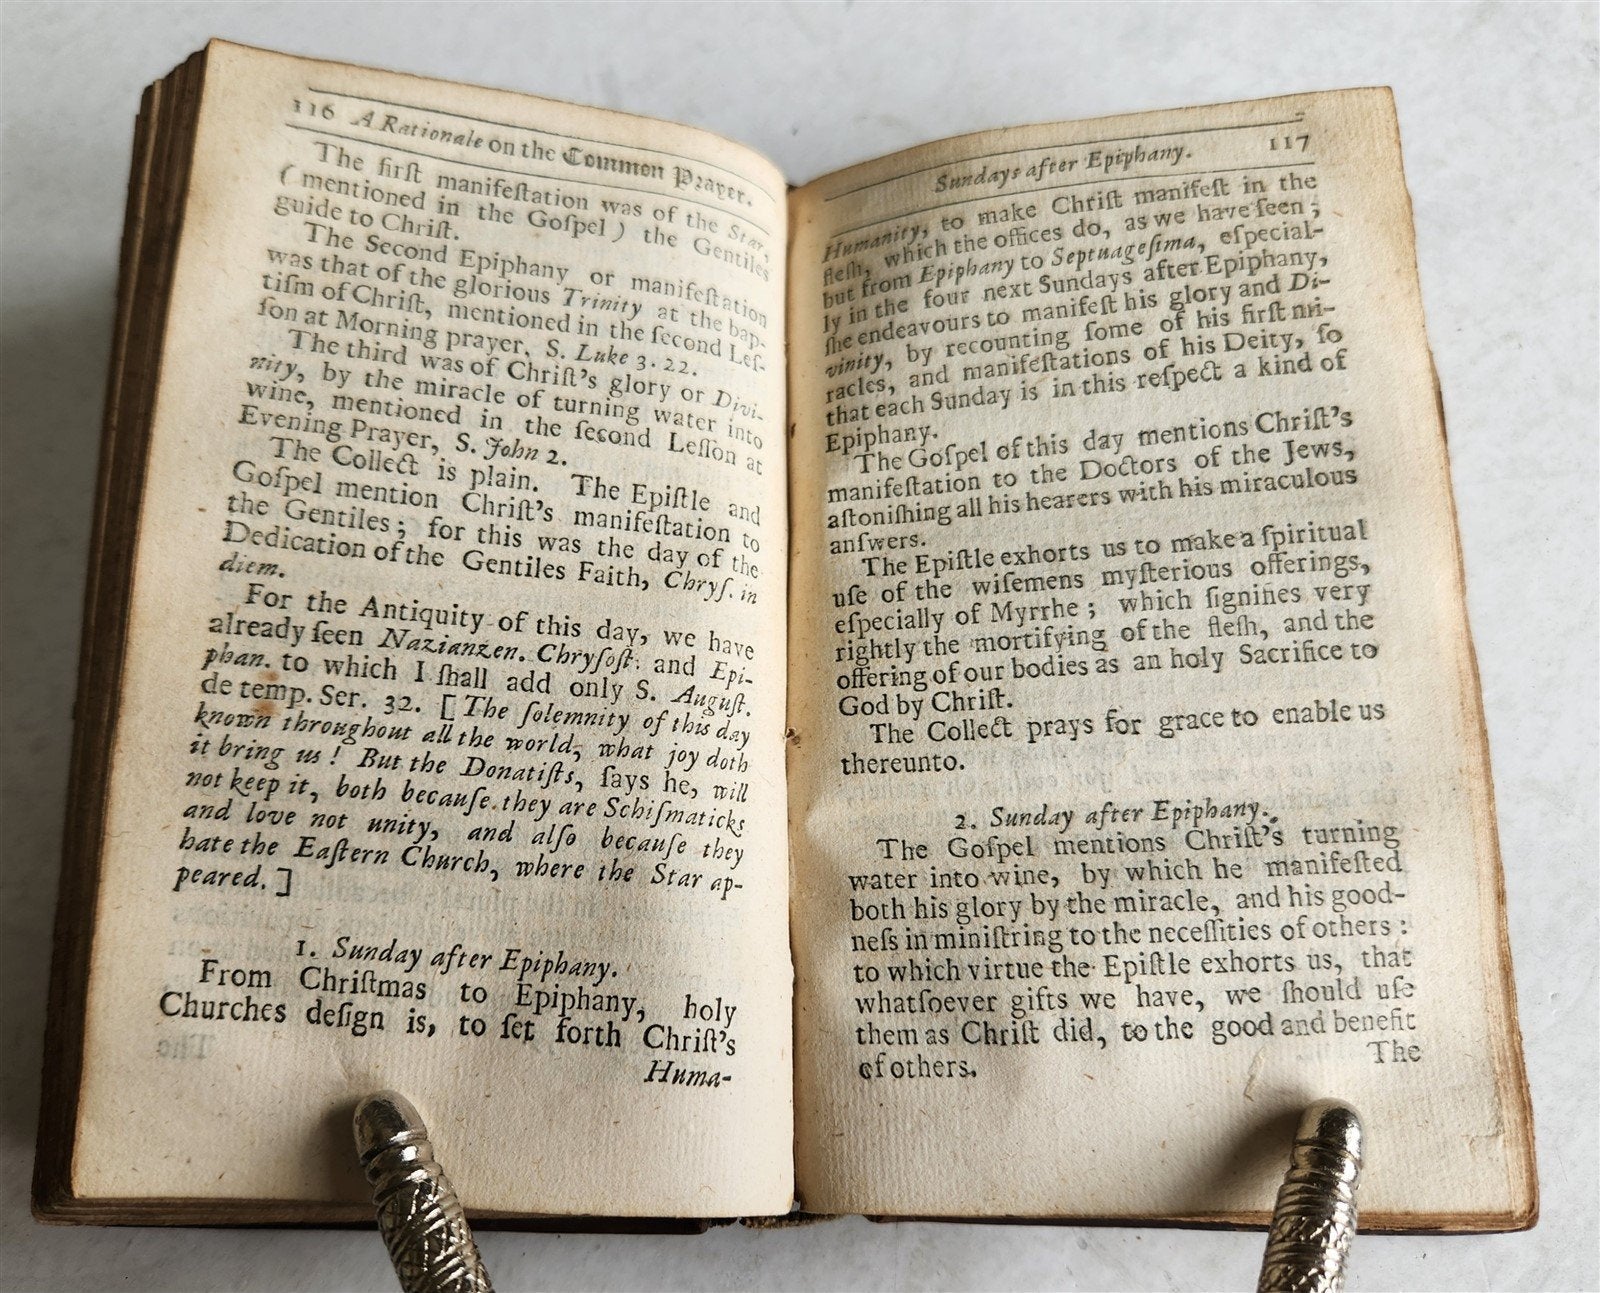 116 A Rationale on the Common Prayer.
The firſt manifeſtation was of the Star,
( mentioned in the Goſpel ) the Gentiles
guide to Chriſt.
The Second Epiphany or manifeſtation
was that of the glorious Trinity at the bap-
tiſm of Chriſt, mentioned in the ſecond Leſ-
ſon at Morning prayer. S. Luke 3. 22.
The third was of Chriſt's glory or Divi-
nity, by the miracle of turning water into
wine, mentioned in the ſecond Leſſon at
Evening Prayer, S. John 2.
The Collect is plain. The Epiſtle and
Goſpel mention Chriſt's manifeſtation to
the Gentiles; for this was the day of the
Dedication of the Gentiles Faith, Chryſ. in
diem.
For the Antiquity of this day, we have
already ſeen Nazianzen. Chryſoſt. and Epi-
phan. to which I ſhall add only S. Auguſt.
de temp. Ser. 32. [ The ſolemnity of this day
known throughout all the world, what joy doth
it bring us ! But the Donatiſts, ſays he, will
not keep it, both becauſe they are Schiſmaticks
and love not unity, and alſo becauſe they
hate the Eaſtern Church, where the Star ap-
peared. ]
1. Sunday after Epiphany.
From Chriſtmas to Epiphany, holy
Churches deſign is, to ſet forth Chriſt's
Huma-
Sundays after Epiphany. 117
Humanity, to make Chriſt manifeſt in the
fleſh, which the offices do, as we have ſeen;
but from Epiphany to Septuageſima, eſpecial-
ly in the four next Sundays after Epiphany,
ſhe endeavours to manifeſt his glory and Di-
vinity, by recounting ſome of his firſt mi-
racles, and manifeſtations of his Deity, ſo
that each Sunday is in this reſpect a kind of
Epiphany.
The Goſpel of this day mentions Chriſt's
manifeſtation to the Doctors of the Jews,
aſtoniſhing all his hearers with his miraculous
anſwers.
The Epiſtle exhorts us to make a ſpiritual
uſe of the wiſemens myſterious offerings,
eſpecially of Myrrhe ; which ſignifies very
rightly the mortifying of the fleſh, and the
offering of our bodies as an holy Sacrifice to
God by Chriſt.
The Collect prays for grace to enable us
thereunto.
2. Sunday after Epiphany.
The Goſpel mentions Chriſt's turning
water into wine, by which he manifeſted
both his glory by the miracle, and his good-
neſs in miniſtring to the neceſſities of others :
to which virtue the Epiſtle exhorts us, that
whatſoever gifts we have, we ſhould uſe
them as Chriſt did, to the good and benefit
of others.
The